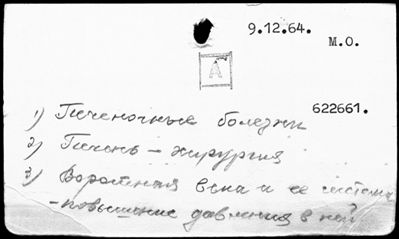 9.12.64.
М.О.
А
622661.
1) Печеночные болезни
2) Печень - хирургия
3) Воротная вена и ее система
- повышение давления в ней